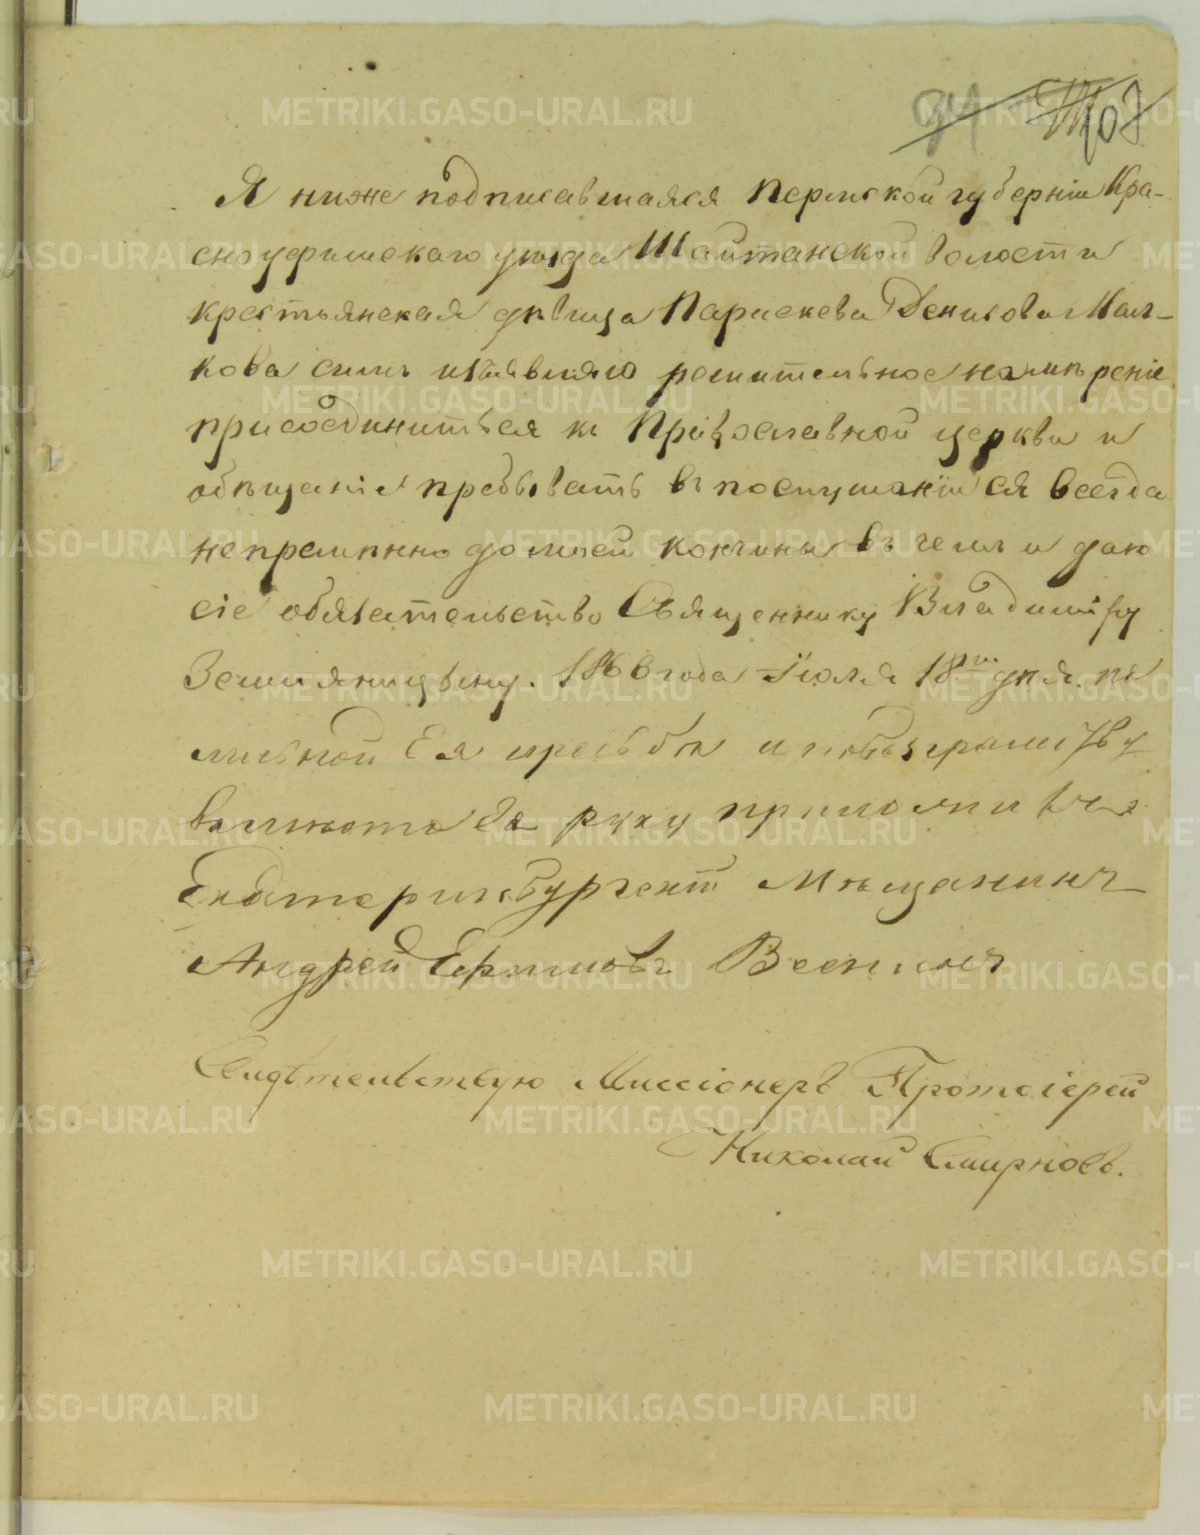 94 108
Я ниже подписавшаяся Пермской губерніи Кра-
сноуфимскаго уѣзда Шайтанской волости
крестьянская дѣвица Параскева Денисова Мал-
кова симъ изъявляю решительное намѣреніе
присоединиться къ Православной церкви и
обѣщаніе пребывать въ послушаніи ея всегда
непремѣнно до моей кончины въ чемъ и даю
сіе обязательство Священнику Владиміру
Земляницыну. 1868 года Іюля 18го дня. по
личьной Ея просьбы и
вместо Ея руку приложилъ
Екатеринбургскій Мѣщанинъ
Андрей Ермиловъ Веснинъ
Свидѣтельствую Миссіонеръ Протоіерей
Николай Смирновъ.
METRIKI.GASO-URAL.RU